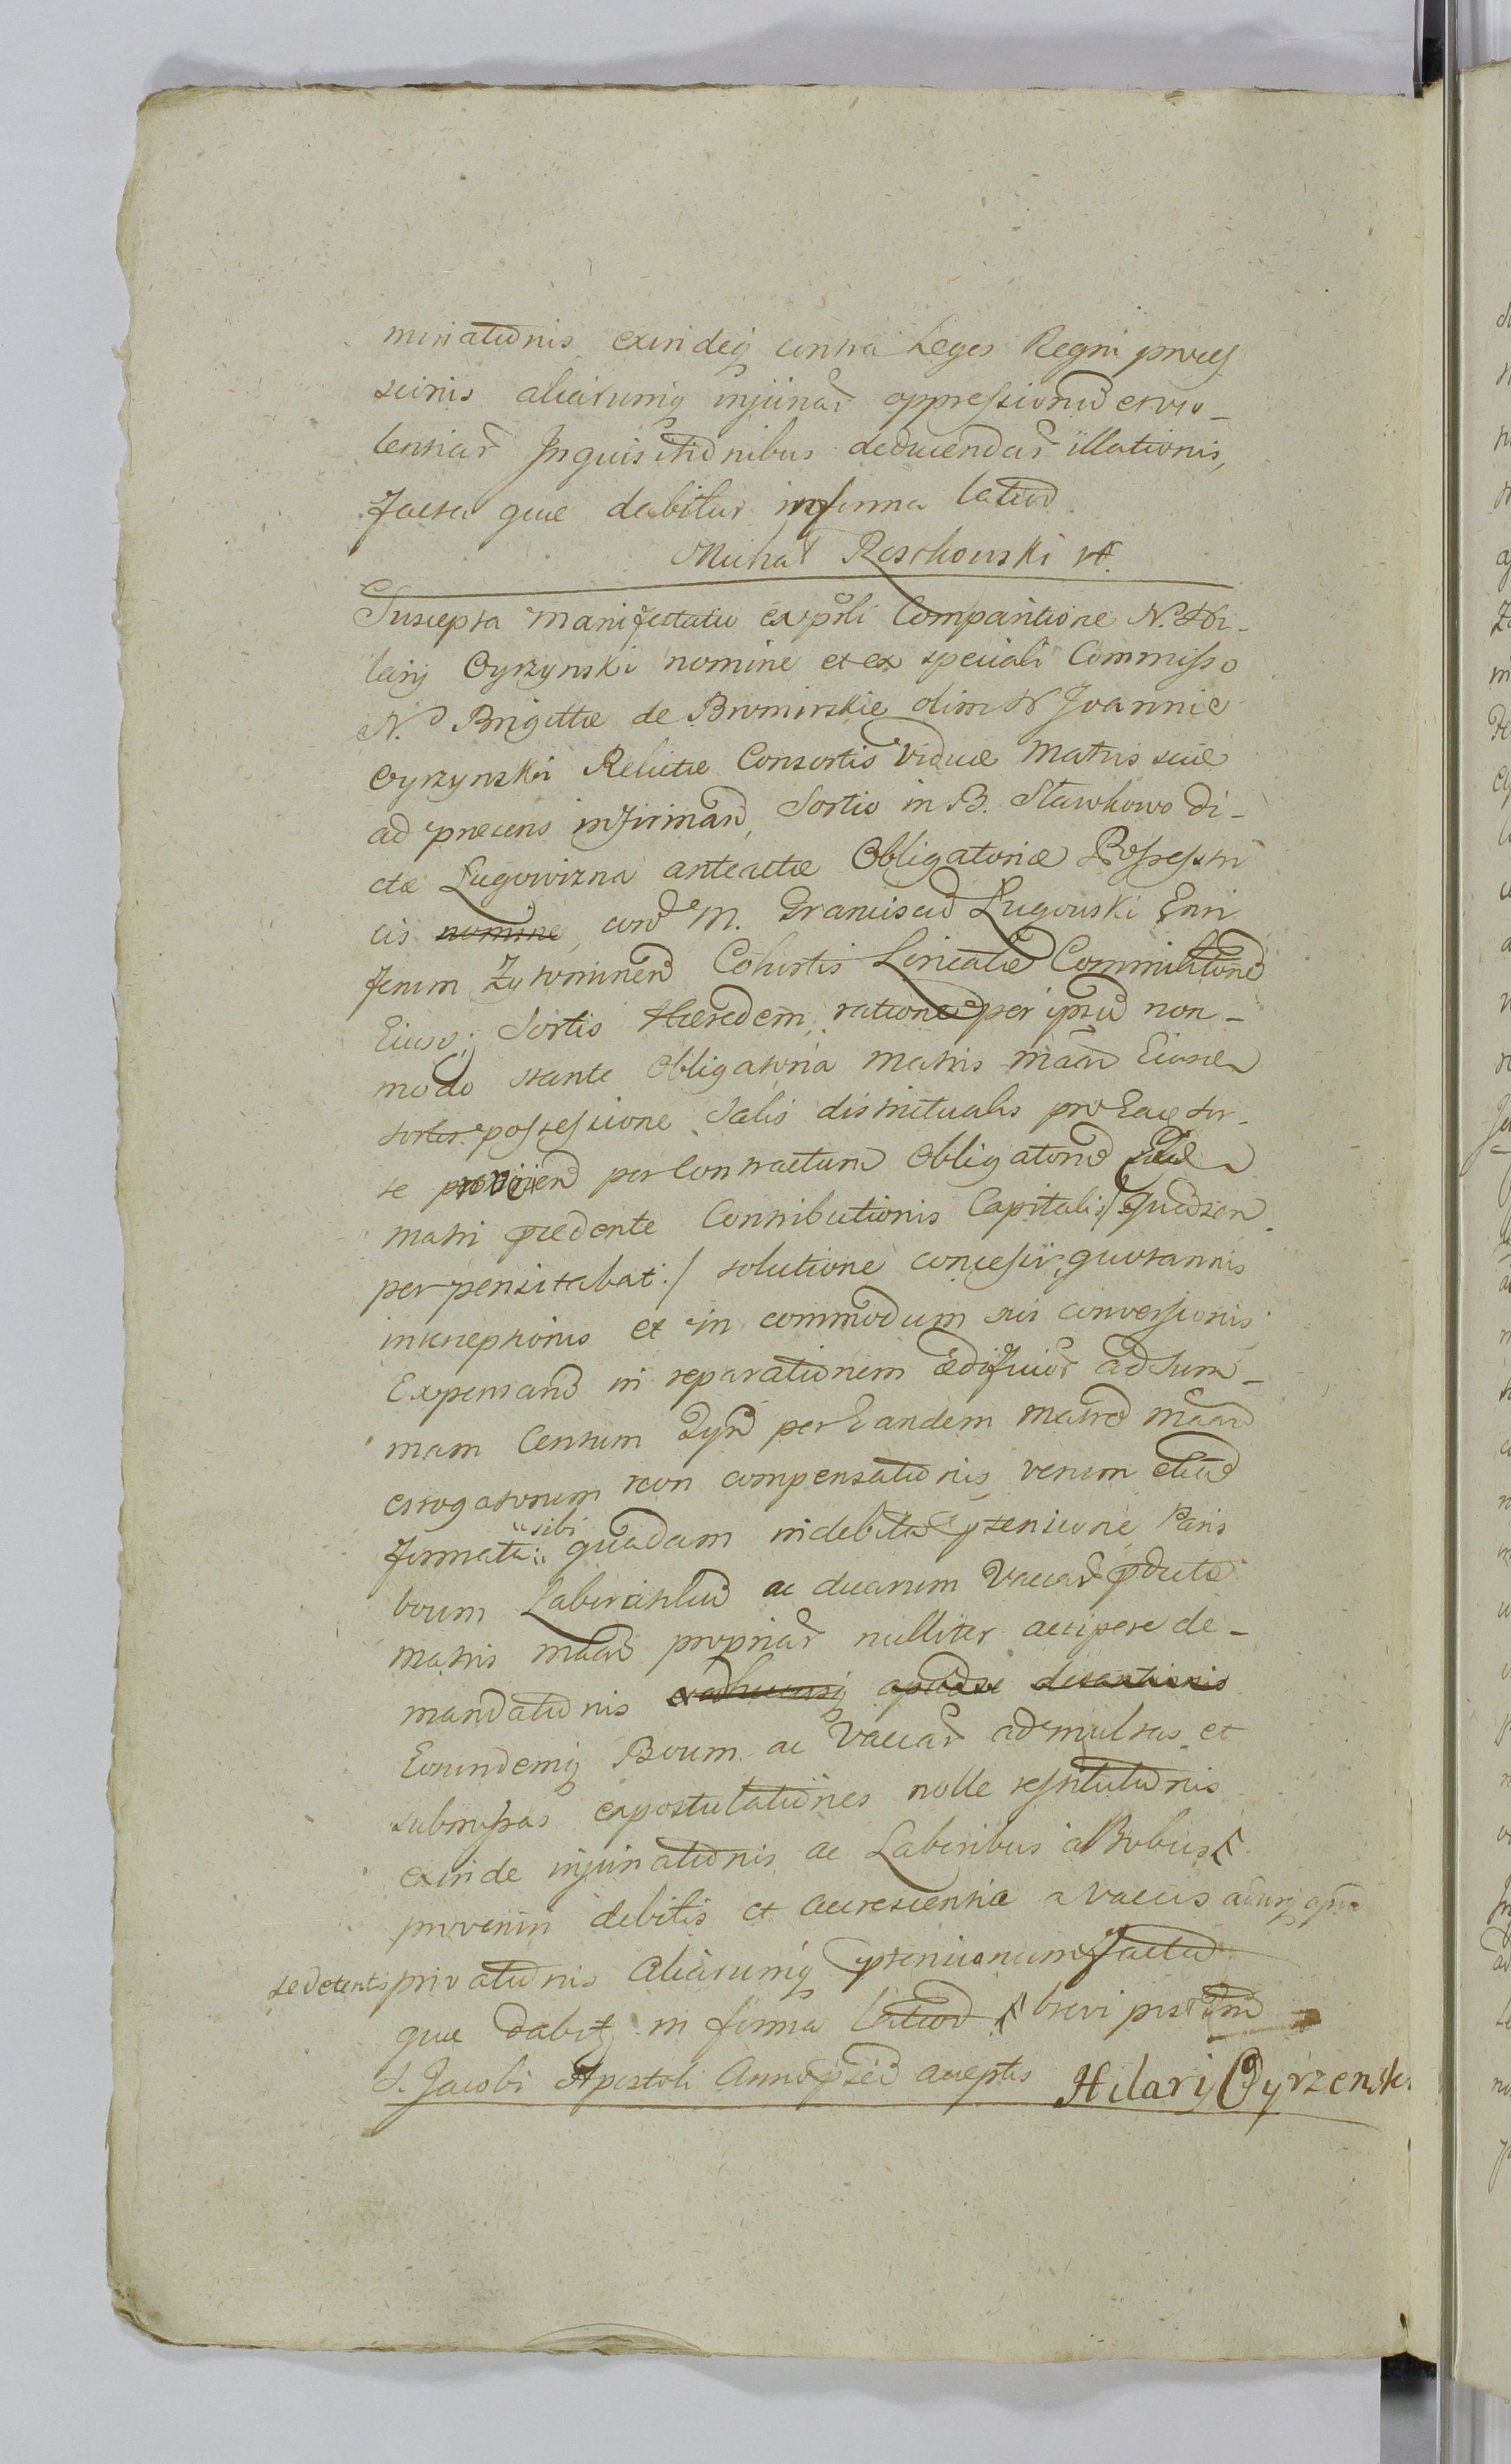 minationis exindeq contra Leges Regni proces
sionis aliarumq injuriar oppressionu et vio_
lentiar Inquisitionibus deducendar illationis,
facta quae dabitur in forma lation
Michał Roschowski
Suscepta Manifestatio ex psli Comparitione N. Hi_
larij Oyrzynski nomine et ex speciali Commisso
N. Brigittae de Bromirskie olim N Joannis
Oyrzynski Relictae Consortis Viduae Matris suae
ad praesens infirman, Sortis in B. Sławkowo di_
ctae Ługowizna anteactae Obligatoriae Possessri
cis nomine, con M. Franciscu Ługowski
ferum Zytominen Cohortis Loricatae Commilitone
Eiusd: Sortis Haeredem, ratione per ipsu non_
modo stante Obligatoria Matris maan Eiusd
sortis possessione Salis districtualis pro Eae sor_
te provijen per Contractum Obligatoriu
matri praedente Contributionis Capitalis /quasen
per pensitabat:/ solutione concessi, quotannis
interceptionis et in commodum sui conversionis
Expensaru in reparationem aedificior ad sum_
mam Centum Tyn per Eandem matre maan
errogatorum non compensationis, verum etia
formata sibi quadam indebita ptensione Paris
boum Laborantiu ac duarum Vaccar pdictae
matris maan propriar nulliter accipere de_
mandationis apud se
Eorundemq Boum ac Vaccar ad multas et
submissas expostulationes nolle restitutionis
exinde injuriationis ac Laboribus a Bobus
provenin debitis et accrescentia a vaccis
se detentis privationis aliarumq ptensionum facta
quae dabit in forma lation brevi post Dni
S. Jacobi Apostoli Anno pseu acceptis Hilarij Oyrzenski